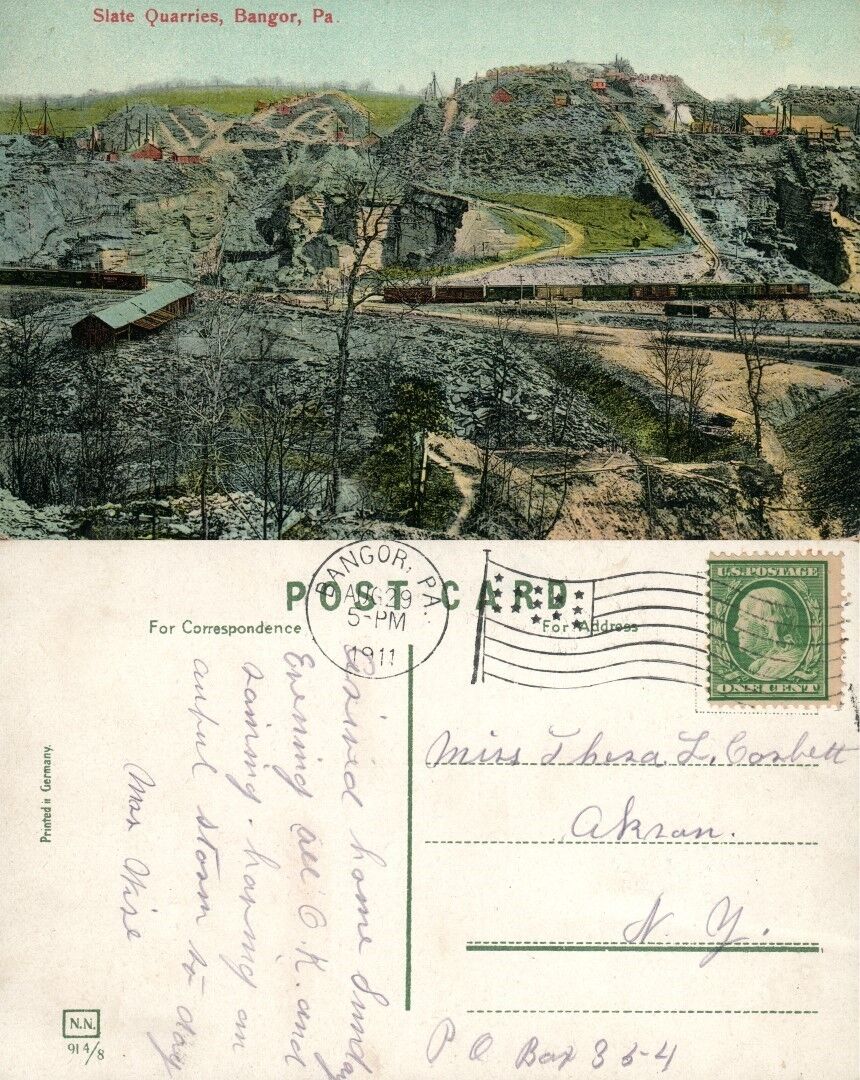 Slate Quarries, Bangor, Pa.
POST CARD
BANGOR, PA.
AUG 29
5-PM
1911
U.S. POSTAGE
ONE CENT
For Correspondence
For Address
Arrived home Sunday
Evening all O.K. and
raining. having an
awful storm to day
Max Wise
Miss Thera L. Corbett
Akron.
N. Y.
P O Box 354
Printed in Germany.
N.N.
91 4/8